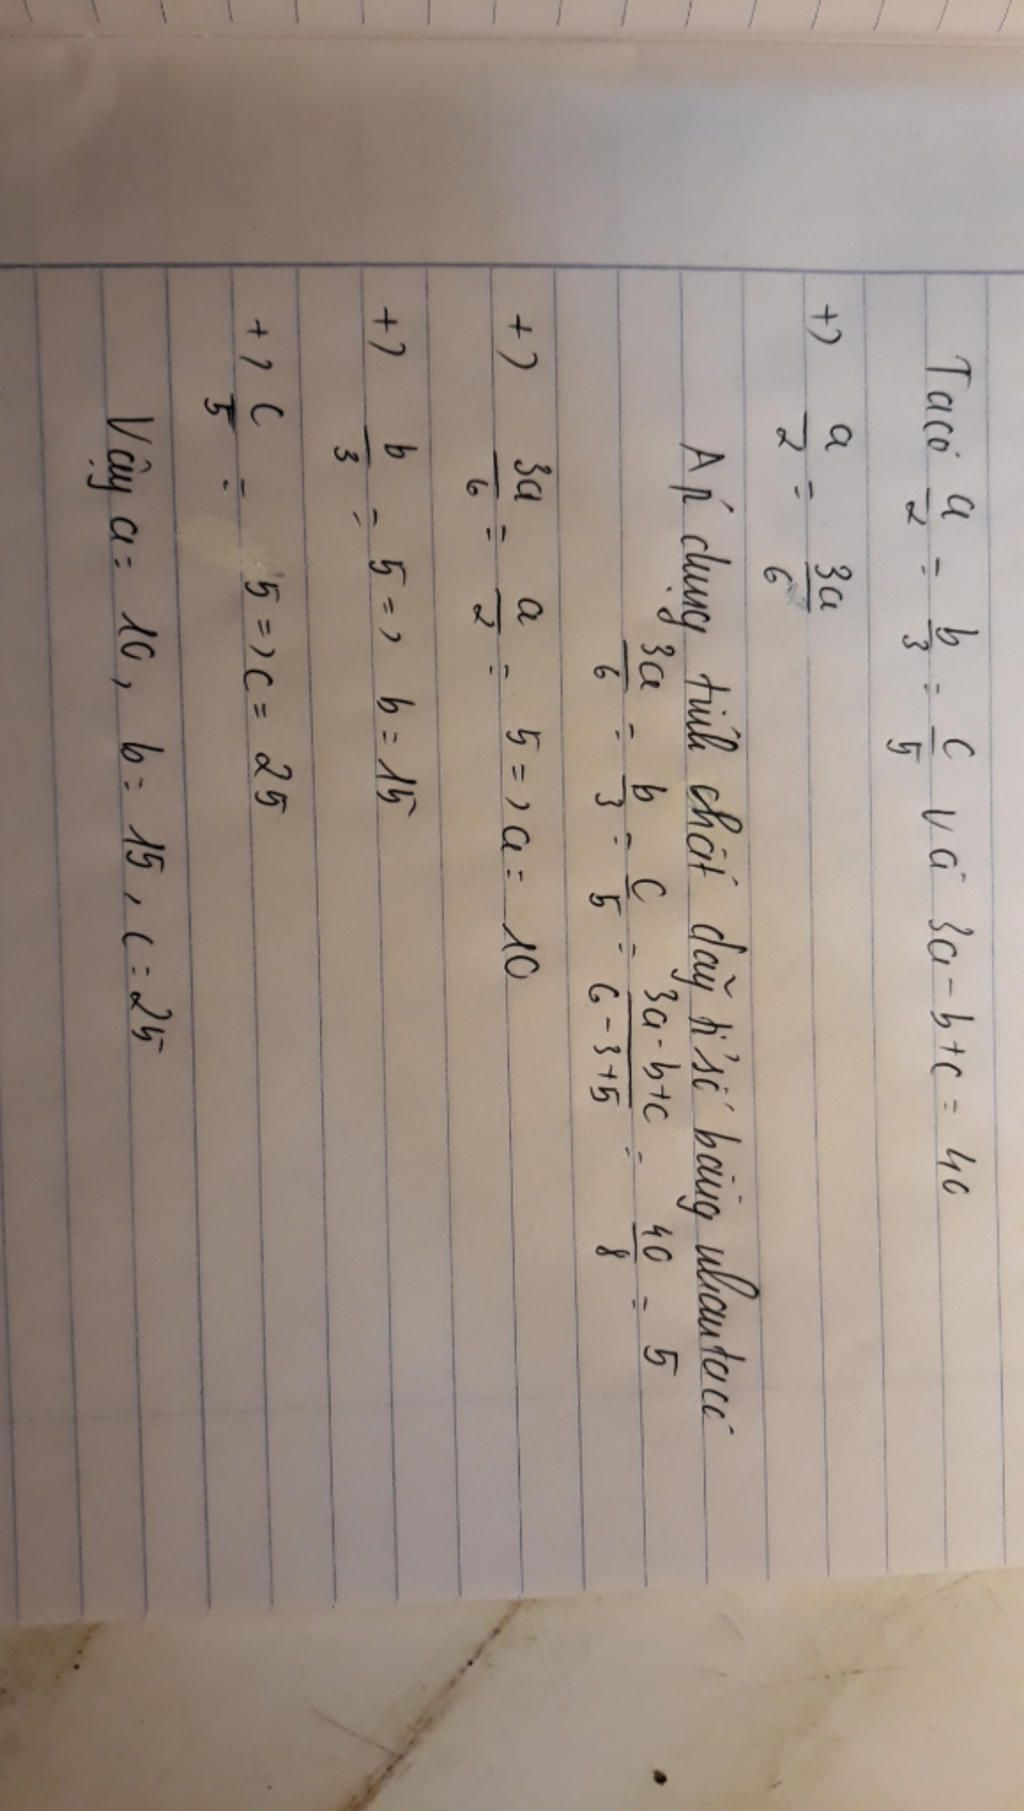 Ta có a/2 = b/3 = c/5 và 3a - b + c = 40
+) a/2 = 3a/6
Áp dụng tính chất dãy tỉ số bằng nhau ta có
3a/6 = b/3 = c/5 = 3a - b + c / 6 - 3 + 5 = 40/8 = 5
+) 3a/6 = a/2 = 5 => a = 10
+) b/3 = 5 => b = 15
+) c/5 = 5 => c = 25
Vậy a = 10, b = 15, c = 25